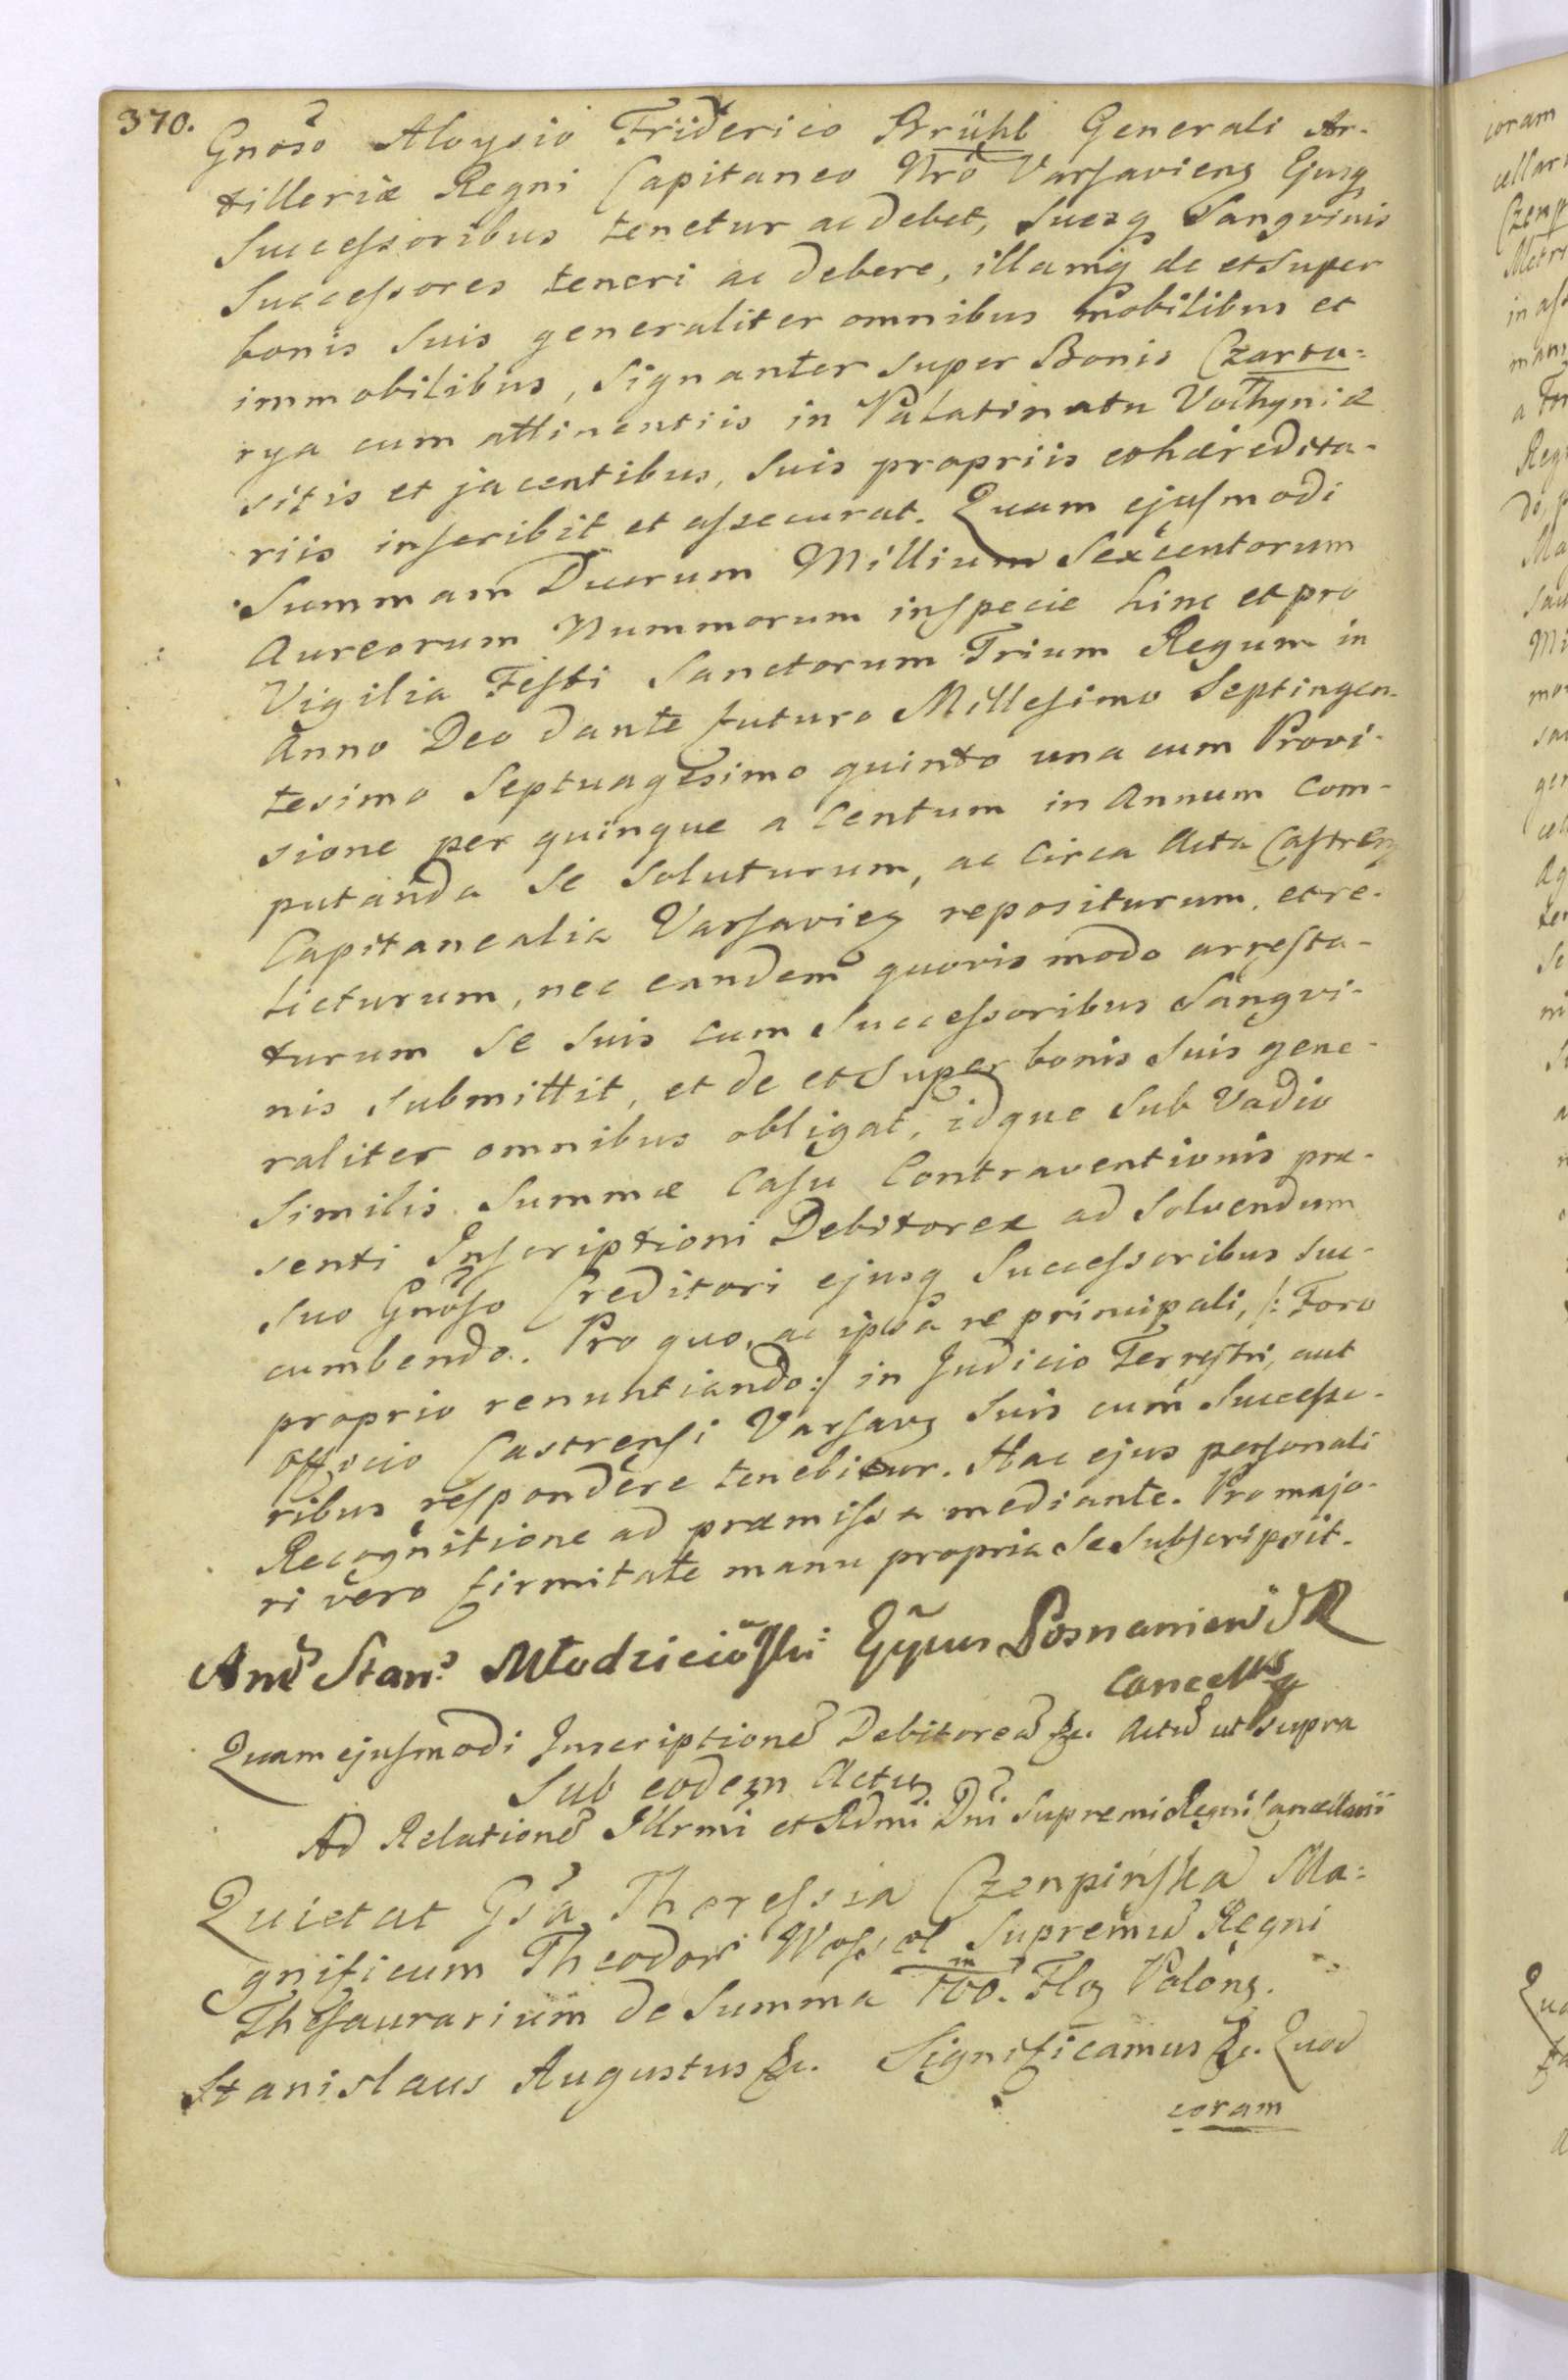 370.
Gnoso Aloysio Friderico Brühl Generali Ar-
tilleriæ Regni Capitaneo Nro Varsaviens Ejusq
Successoribus tenetur ac debet, Suosq Sangvinis
Successores teneri ac debere, illamq de et super
bonis suis generaliter omnibus mobilibus et
immobilibus, signanter super Bonis Czarto=
rya cum attinentiis in Palatinatu Volhyniæ
sitis et jacentibus, suis propriis et hæredita-
riis inscribit et assecurat. Quam ejusmodi
Summam Duorum Millium Sexcentorum
Aureorum Nummorum in specie hinc et pro
Vigilia Festi Sanctorum Trium Regum in
Anno Deo dante futuro Millesimo Septingen-
tesimo Septuagesimo quinto una cum Provi-
sione per quinque a Centum in Annum com-
putanda se soluturum, ac circa Acta Castren
Capitanealia Varsavien repositurum, et re-
licturum, nec eandem quovis modo arresta-
turum se suis cum Successoribus Sangvi-
nis submittit, et de et super bonis suis gene-
raliter omnibus obligat, idque sub Vadio
similis Summæ casu Contraventionis præ-
senti Inscriptioni Debitoreæ ad solvendum
suo Gnoso Creditori ejusq Successoribus suc-
cumbendo. Pro quo, ac ipsa re principali, /: Foro
proprio renuntiando :/ in Judicio Terrestri, aut
officio Castrensi Varsavs suis cum Successo-
ribus respondere tenebitur. Hac ejus personali
Recognitione ad præmissa mediante. Pro majo-
ri vero firmitate manu propria se subscripsit.
And Stans Młodzieiowski Eppus Posnanien SR
Cancellus
Quam ejusmodi Inscriptione Debitorea &c. Actu ut supra
Sub eodem Actu
Ad Relatione Illrmi et Rdmi Dni Supremi Regni Cancellarii
Quietat Gsa Theressia Czenpińska Ma=
gnificum Theodor Wessel Supremu Regni
Thesaurarium de Summa Floz Polons.
Stanislaus Augustus &c. Significamus &c. Quod
coram